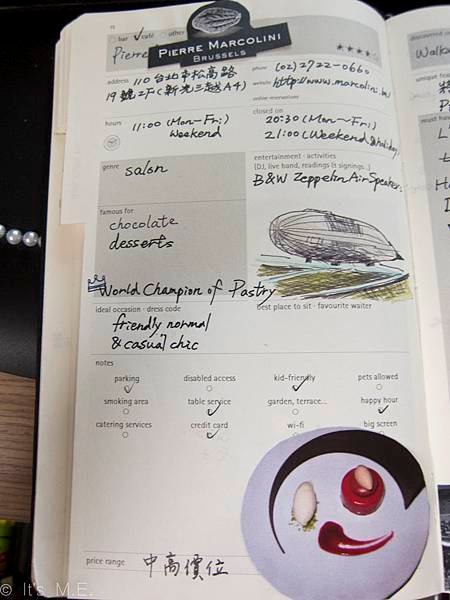 15
bar café other
Pierre
PIERRE MARCOLINI
BRUSSELS
address 110台北市松高路
19號2F(新光三越A4)
phone (02)2722-0660
website http://www.marcolini.tw
online reservations
hours 11:00 (Mon~Fri)
Weekend
closed on 20:30 (Mon~Fri)
21:00 (Weekend & holiday)
genre salon
entertainment · activities
(DJ, live band, readings & signings...)
B&W Zeppelin Air Speakers
famous for
chocolate
desserts
World Champion of Pastry
ideal occasion · dress code
friendly normal
& casual chic
best place to sit · favourite waiter
notes
parking disabled access kid-friendly pets allowed
smoking area table service garden, terrace... happy hour
catering services credit card wi-fi big screen
price range 中高價位
discovered
Walk
unique
must have
© It's M.E.